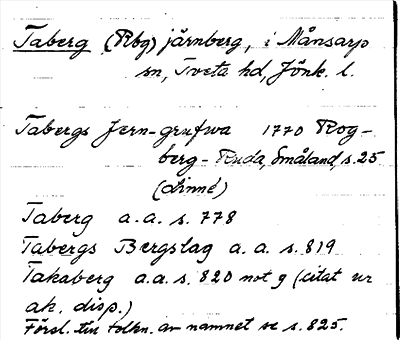 Taberg (Rbg) järnberg, i Månsarp
sn, Tveta hd, Jönk. l.
Tabergs Jern-grufwa 1770 Rog-
berg - Ruda, Småland, s. 25
(Linné)
Taberg a.a. s. 778
Tabergs Bergslag a.a. s. 819
Takaberg a.a. s. 820 not 9 (citat ur
ak. disp.)
Försl. till tolkn. av namnet se s. 825.